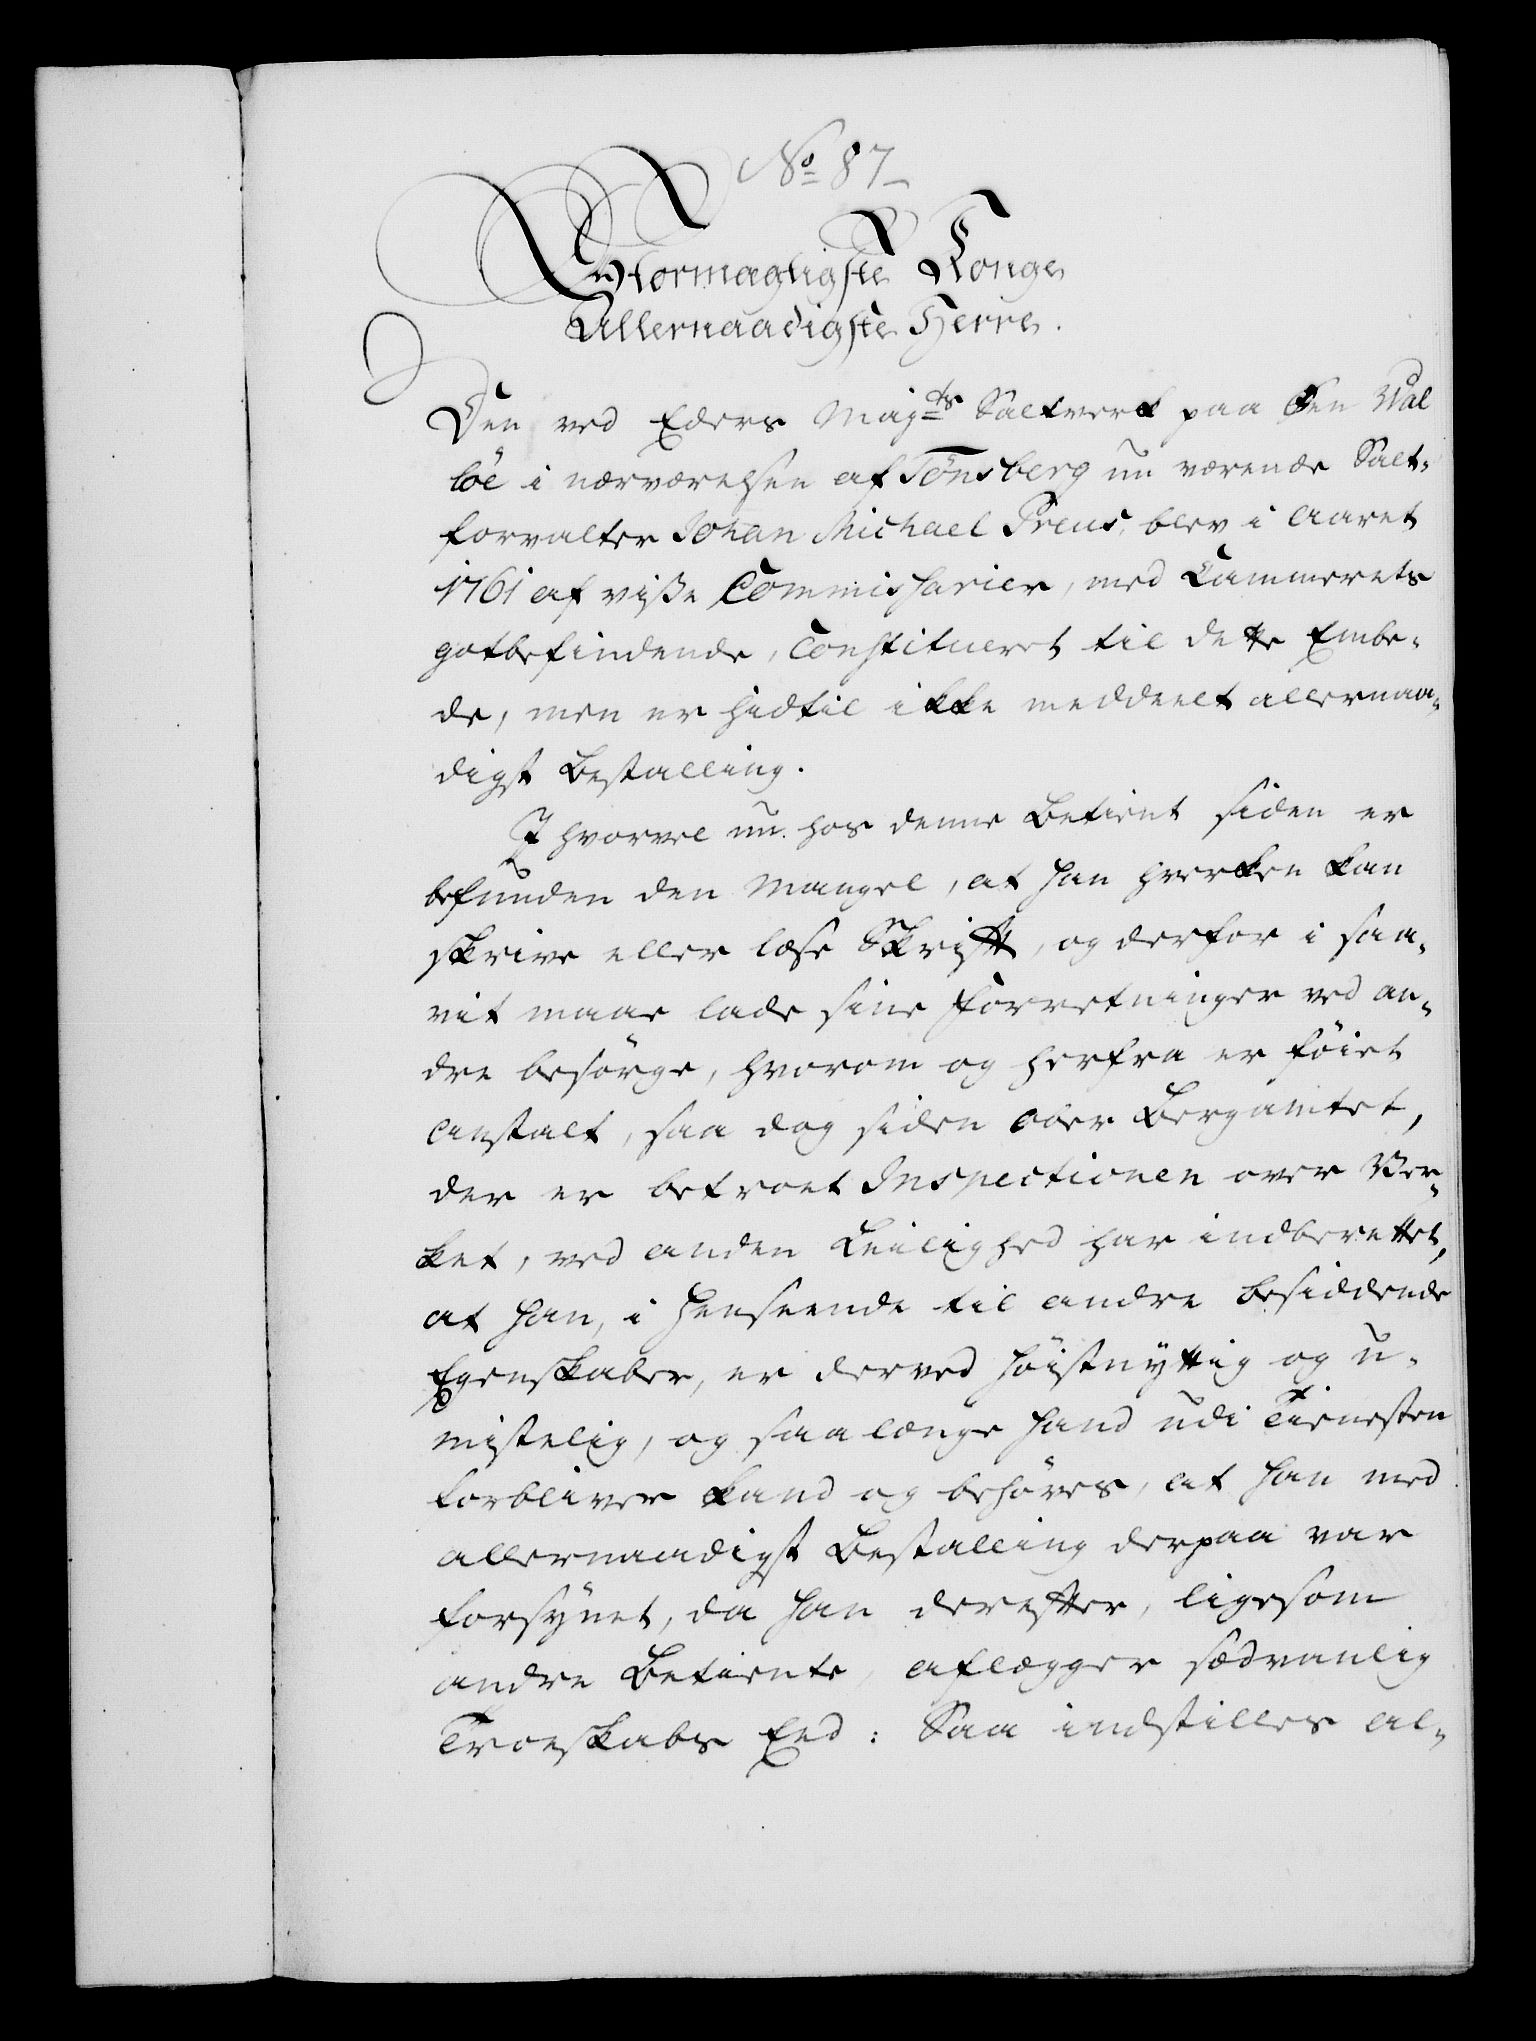 No 87
Stormægtigste Konge
Allernaadigste Herre.
Den ved Eders Majts Saltverk paa Øen Wal
löe i nærværelsen af Tönsberg nu værende Salt-
forvalter Johan Michael Preus, blev i Aaret
1761 af visse Commissarier, med Cammerets
gotbefindende, Constitueret til dette Embe-
de, men er hidtil ikke meddeelt allernaa-
digst Bestalling.
Ihvorvel nu hos denne Betient siden er
befunden den Mangel, at han hverken kan
skrive eller læse Skrift, og derfor i saa-
vit maae lade sine Forretninger ved an-
dre besörge, hvorom og herfra er föiet
Anstalt, saa dog siden Ober Bergamtet,
der er betroet Inspectionen over Ver-
ket, ved anden Leilighed har indberettet,
at han, i Henseende til andre besiddende
Egenskaber, er derved höistnyttig og u-
mistelig, og saa længe hand udi Tienesten
forbliver kand og behöves, at han med
allernaadigst Bestalling derpaa var
forsynet, da han derefter, ligesom
andre Betiente, aflægger sædvanlig
Troeskabs Eed: Saa indstilles al-